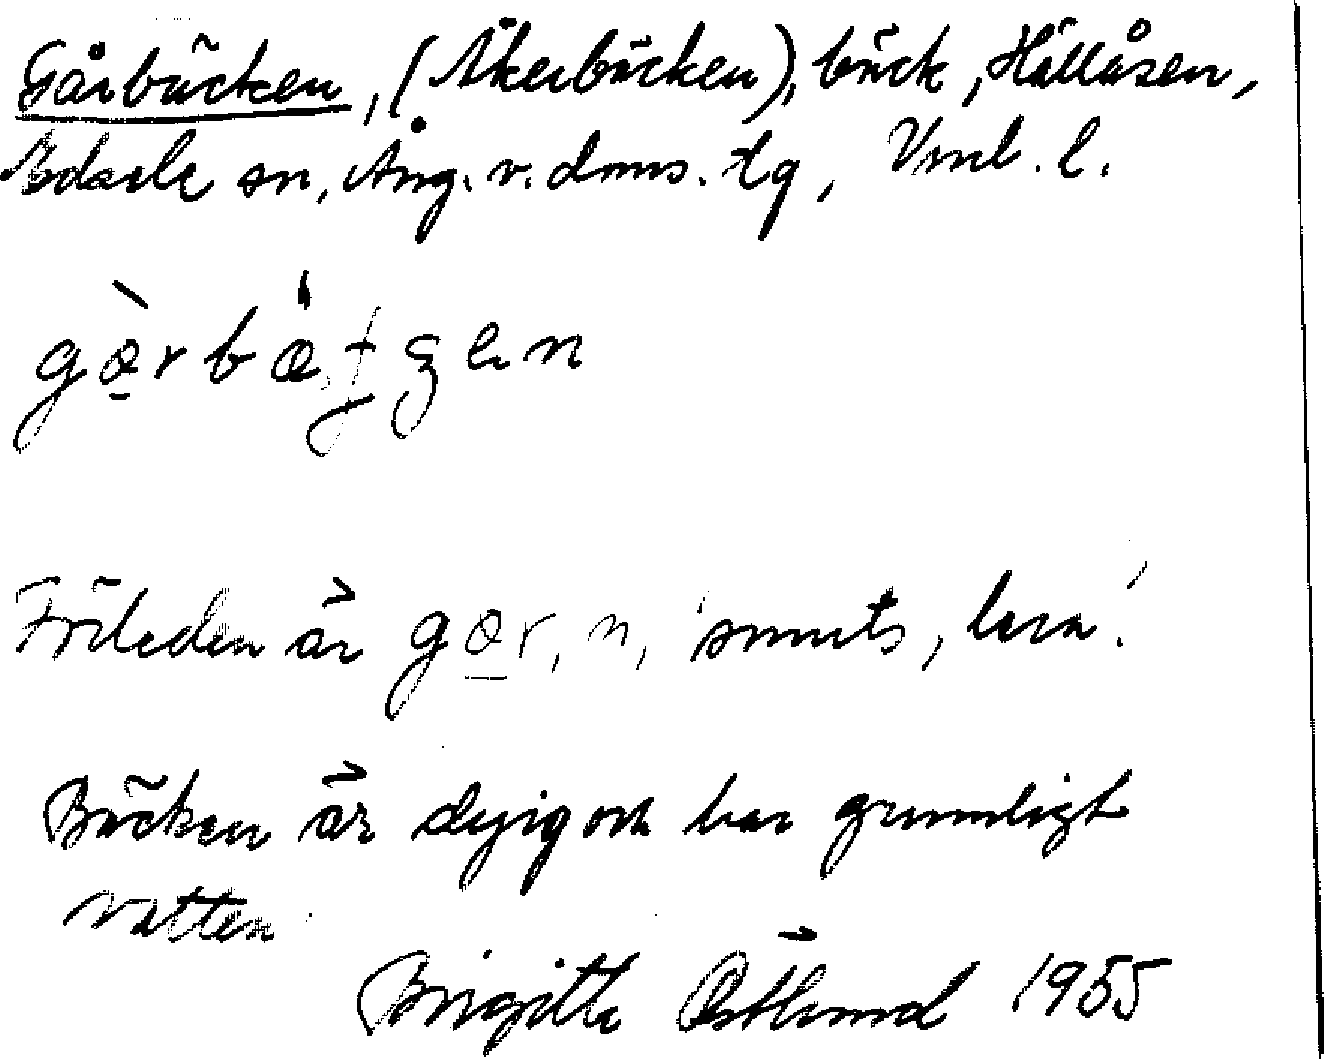 Gårbäcken, (Åkerbäcken), bäck, Hällåsen,
Edsele sn, Ång. v. doms. tg, Vnl. l.
Förleden är gär, n, 'smuts, lera'.
Bäcken är dyig och har grumligt
vatten.
Birgitta Östlund 1955